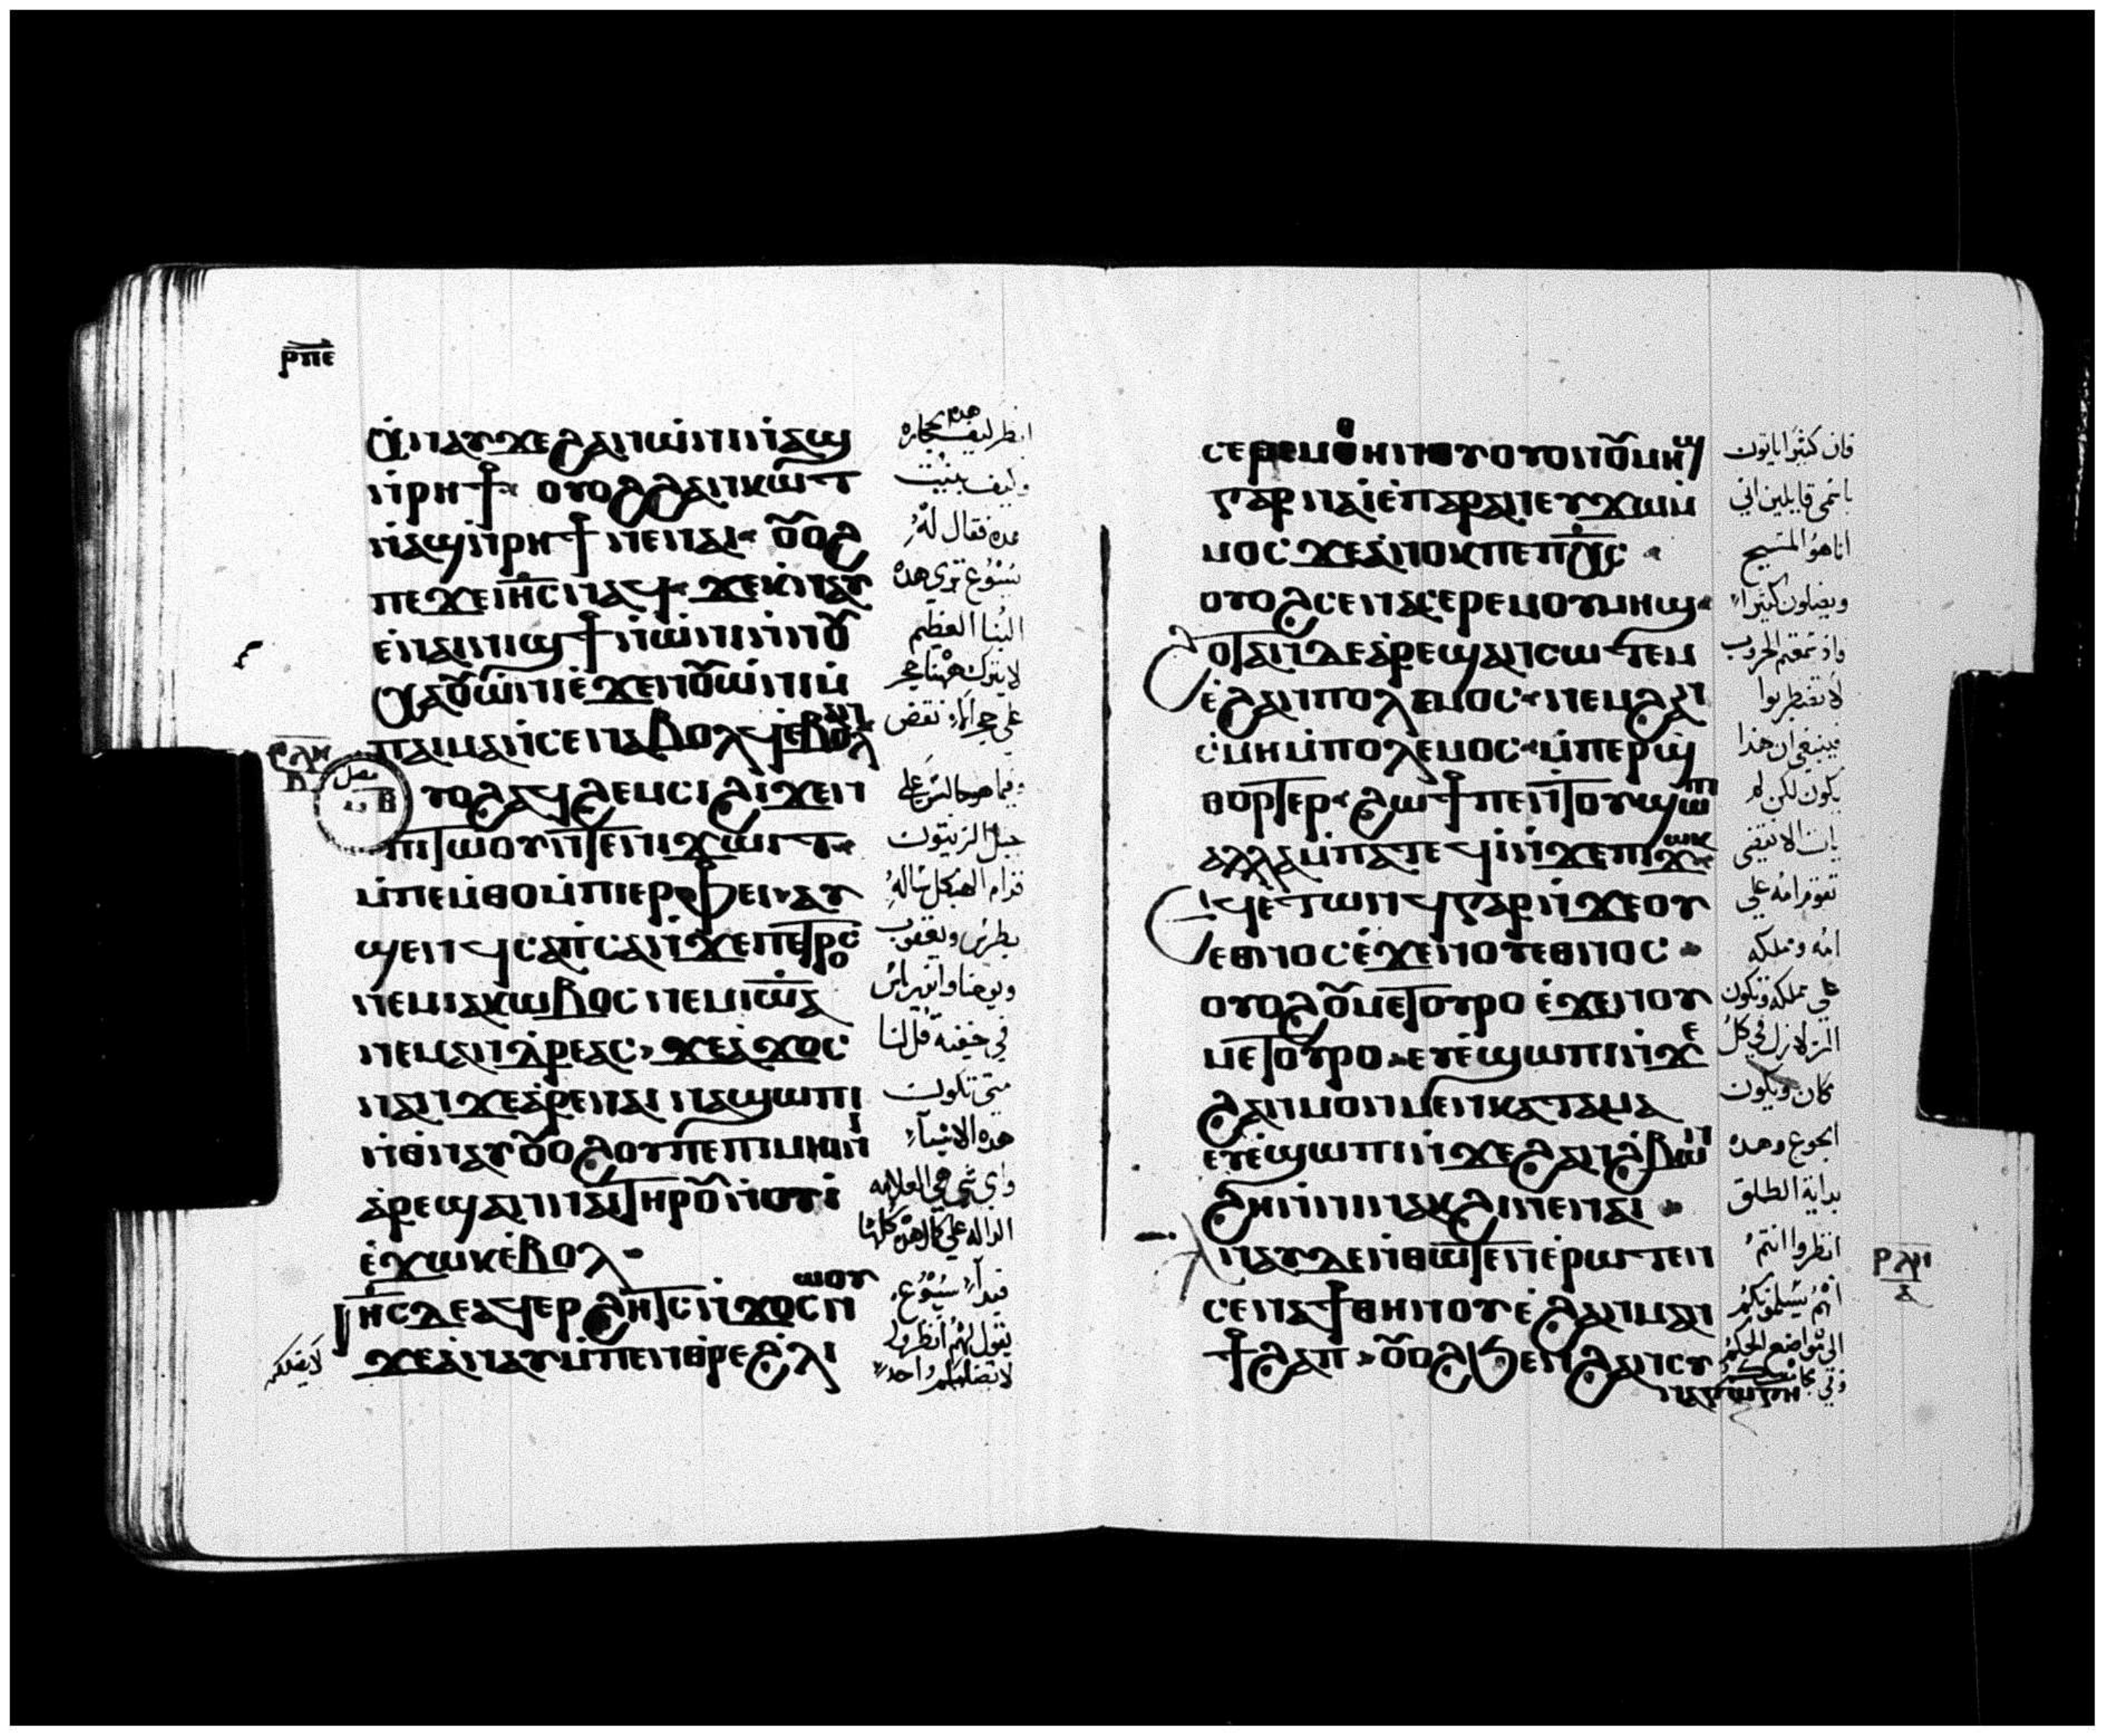 ⲣⲡⲉ
ⲁⲛⲁⲩ ϫⲉ ϩⲁⲛⲱⲛⲓ ⲛⲁϣ
ⲛⲣⲏϯ ⲟⲩⲟϩ ϩⲁⲛⲕⲱⲧ
ⲛⲁϣ ⲛⲣⲏϯ ⲛⲉ ⲛⲁⲓ ⲟⲩⲟϩ
ⲡⲉϫⲉ ⲓⲏⲥ ⲛⲁϥ ϫⲉ ⲕⲛⲁⲩ
ⲉⲛⲁⲓⲛⲓϣϯ ⲛⲱⲛⲓ ⲛⲛⲟⲩ
ⲭⲁ ⲟⲩⲱⲛⲓ ⲉϫⲉⲛ ⲟⲩⲱⲛⲓ ⲙ
ⲡⲁⲓⲙⲁ ⲛⲥⲉⲛⲁⲃⲟⲗϥ ⲉⲃⲟⲗ ⲁⲛ
ⲣⲗⲏ
ⲃ
فصل
ⲩⲟϩ ⲁϥϩⲉⲙⲥⲓ ϩⲓϫⲉⲛ
ⲡⲓⲧⲱⲟⲩ ⲛⲧⲉ ⲛⲓϫⲱⲓⲧ
ⲙⲡⲉⲙⲑⲟ ⲙⲡⲓⲉⲣⲫⲉⲓ ⲛⲁⲩ
ϣⲉⲛϥ ⲥⲁⲡⲥⲁ ⲛϫⲉ ⲡⲉⲧⲣⲟⲥ
ⲛⲉⲙ ⲓⲁⲕⲱⲃⲟⲥ ⲛⲉⲙ ⲓⲱⲁ
ⲛⲉⲙ ⲁⲛⲇⲣⲉⲁⲥ ϫⲉ ⲁϫⲟⲥ
ⲛⲁⲛ ϫⲉ ⲁⲣⲉ ⲛⲁⲓ ⲛⲁϣⲱⲡⲓ
ⲛⲑⲛⲁⲩ ⲟⲩⲟϩ ⲟⲩ ⲡⲉ ⲡⲓⲙⲏⲓⲛⲓ
ⲁⲣⲉϣⲁⲛ ⲛⲁⲓ ⲧⲏⲣⲟⲩ ⲛⲟⲩⲓ
ⲉϫⲱⲕ ⲉⲃⲟⲗ
ⲓⲏⲥ ⲇⲉ ⲁϥⲉⲣϩⲏⲧⲥ ⲛϫⲟⲥ ⲛⲱⲟⲩ
ϫⲉ ⲁⲛⲁⲩ ⲙⲡⲉⲛⲑⲣⲉ ϩⲗⲓ
انظر ليف هده الحجاره
وليف بنيت
هده فقال له
يسوع تري هده
البنا العظيم
لا يترك ههنا حجر
على حجر الا نقض
وفيما هو جالس على
جبل الزيتون
قدام الهيكل ساله
بطرس ويعقوب
ويوحنا واندراس
في خفيه قل لنا
متى تكون
هده الاشيآء
واي شي هي العلامه
فبدآ يسوع
يقول لهم انظروا
لا يضلكم احد
لا يضلكم
ⲥⲉⲣⲉⲙ ⲑⲏⲛⲟⲩ ⲟⲩⲟⲛ ⲟⲩⲙⲏϣ
ⲅⲁⲣ ⲛⲁⲓ ⲉⲡⲁⲣⲁⲛ ⲉⲩϫⲱ ⲙ
ⲙⲟⲥ ϫⲉ ⲁⲛⲟⲕ ⲡⲉ ⲡⲭⲥ
ⲟⲩⲟϩ ⲥⲉⲛⲁⲥⲉⲣⲉⲙ ⲟⲩⲙⲏϣ
ϩⲟⲧⲁⲛ ⲇⲉ ⲁⲣⲉϣⲁⲛⲥⲱⲧⲉⲙ
ⲉϩⲁⲛⲡⲟⲗⲉⲙⲟⲥ ⲛⲉⲙ ϩⲁⲛ
ⲥⲙⲏ ⲙⲡⲟⲗⲉⲙⲟⲥ ⲙⲡⲉⲣϣ
ⲑⲟⲣⲧⲉⲣ ϩⲱϯ ⲡⲉ ⲛⲧⲟⲩϣⲱⲡⲓ
ⲁⲗⲗⲁ ⲙⲡⲁⲧⲉϥⲓ ⲛϫⲉ ⲡⲓϫⲱⲕ
ⲉϥⲉⲧⲱⲛϥ ⲅⲁⲣ ⲛϫⲉ ⲟⲩ
ⲉⲑⲛⲟⲥ ⲉϫⲉⲛ ⲟⲩⲉⲑⲛⲟⲥ
ⲟⲩⲟϩ ⲟⲩⲙⲉⲧⲟⲩⲣⲟ ⲉϫⲉⲛ ⲟⲩ
ⲙⲉⲧⲟⲩⲣⲟ ⲉⲩⲉϣⲱⲡⲓ ⲛϫⲉ
ϩⲁⲛⲙⲟⲛⲙⲉⲛ ⲕⲁⲧⲁ ⲙⲁ
ⲉⲩⲉϣⲱⲡⲓ ⲛϫⲉ ϩⲁⲛϩⲃⲱⲛ
ϩⲏ ⲛⲛⲓⲛⲁⲕϩⲓ ⲛⲉ ⲛⲁⲓ
ⲁⲛⲁⲩ ⲇⲉ ⲛⲑⲱⲧⲉⲛ ⲉⲣⲱⲧⲉⲛ
ⲥⲉⲛⲁϯ ⲑⲏⲛⲟⲩ ⲉϩⲁⲛⲙⲁⲛ
ϯϩⲁⲡ ⲟⲩⲟϩ ϧⲉⲛ ϩⲁⲛⲥⲩ
ⲛⲁⲅⲱⲅⲏ
فان كثيرا ياتون
باسمي قايلين اني
انا هو المسيح
ويضلون كثيرا
واذ سمعتم الحروب
لا تضطربوا
فينبغي ان هذا
يكون لكن لم
يات الانقضى
تقوم امه على
امه ومملكه
على مملكه وتكون
الزلازل في كل
مكان ويكون
الجوع وهده
بداية الطلق
انظروا انتم
انهم يسلمونكم
الى مواضع الحكم
ⲣⲗⲏ
ⲁ